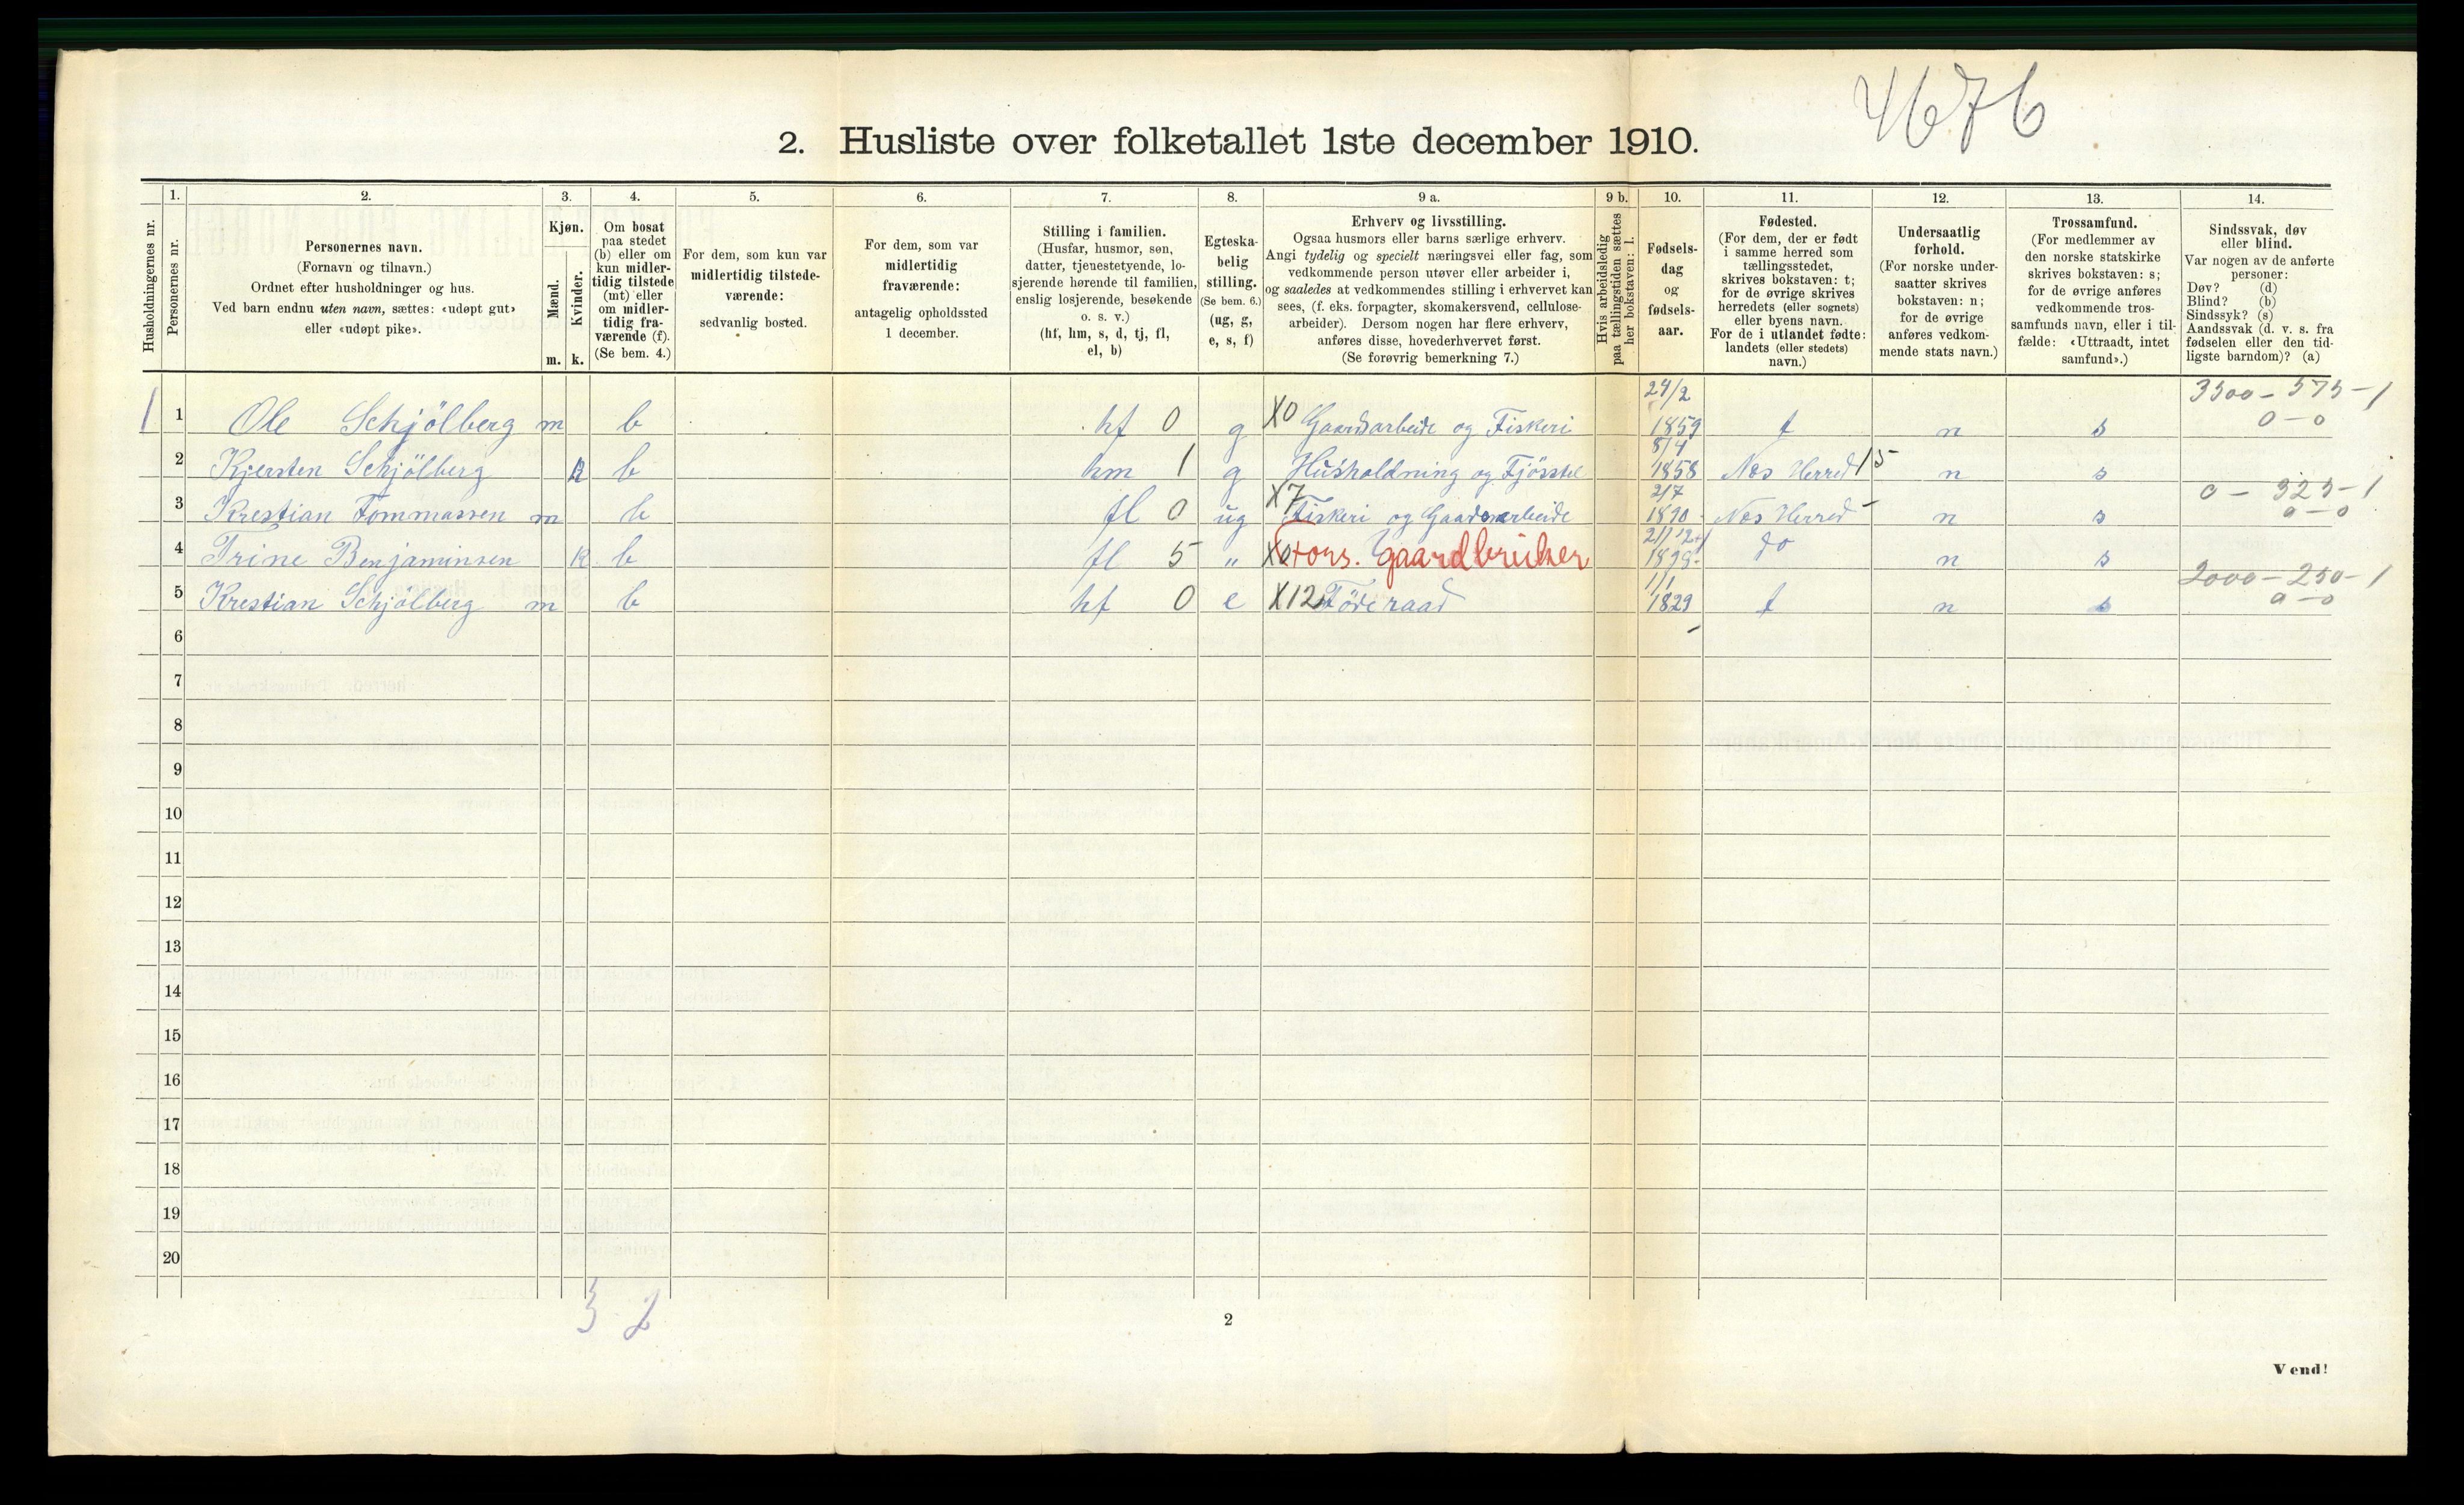 4676
2. Husliste over folketallet 1ste december 1910.
Husholdningernes nr.
1. Personernes nr.
2. Personernes navn.
(Fornavn og tilnavn.)
Ordnet efter husholdninger og hus.
Ved barn endnu uten navn, sættes: «udøpt gut»
eller «udøpt pike».
3. Kjøn.
Mænd. Kvinder.
m. k.
4. Om bosat
paa stedet
(b) eller om
kun midler-
tidig tilstede
(mt) eller
om midler-
tidig fra-
værende (f).
(Se bem. 4.)
5. For dem, som kun var
midlertidig tilstede-
værende:
sedvanlig bosted.
6. For dem, som var
midlertidig
fraværende:
antagelig opholdssted
1 december.
7. Stilling i familien.
(Husfar, husmor, søn,
datter, tjenestetyende, lo-
sjerende hørende til familien,
enslig losjerende, besøkende
o. s. v.)
(hf, hm, s, d, tj, fl,
el, b)
8. Egteska-
belig
stilling.
(Se bem. 6.)
(ug, g,
e, s, f)
9 a. Erhverv og livsstilling.
Ogsaa husmors eller barns særlige erhverv.
Angi tydelig og specielt næringsvei eller fag, som
vedkommende person utøver eller arbeider i,
og saaledes at vedkommendes stilling i erhvervet kan
sees, (f. eks. forpagter, skomakersvend, cellulose-
arbeider). Dersom nogen har flere erhverv,
anføres disse, hovederhvervet først.
(Se forøvrig bemerkning 7.)
9 b. Hvis arbeidsledig
paa tællingstiden sættes
her bokstaven: l.
10. Fødsels-
dag
og
fødsels-
aar.
11. Fødested.
(For dem, der er født
i samme herred som
tællingsstedet,
skrives bokstaven: t;
for de øvrige skrives
herredets (eller sognets)
eller byens navn.
For de i utlandet fødte:
landets (eller stedets)
navn.)
12. Undersaatlig
forhold.
(For norske under-
saatter skrives
bokstaven: n;
for de øvrige
anføres vedkom-
mende stats navn.)
13. Trossamfund.
(For medlemmer av
den norske statskirke
skrives bokstaven: s;
for de øvrige anføres
vedkommende tros-
samfunds navn, eller i til-
fælde: «Uttraadt, intet
samfund».)
14. Sindssvak, døv
eller blind.
Var nogen av de anførte
personer:
Døv? (d)
Blind? (b)
Sindssyk? (s)
Aandssvak (d. v. s. fra
fødselen eller den tid-
ligste barndom)? (a)
24/2 3500 - 575 - 1
1 1 Ole Schjölberg m b hf 0 g X0 Gaardsarbeide og Fiskeri 1859 t n s 0 - 0
8/4
2 Kjersten Schjölberg k b hm 1 g Husholdning og Fjösstel 1858 Nes Herred 15 n s
2/7 0 - 325 - 1
3 Krestian Tommassen m b fl 0 ug X7 Fiskeri og Gaardsarbeide 1890 Nes Herred n s 0 - 0
21/12
4 Trine Benjaminsen k b fl 5 " X0 gaardbruker do n s
1/1 2000 - 250 - 1
5 Krestian Schjölberg m b hf 0 e X12 Föderaad 1829 t n s 0 - 0
6
7
8
9
10
11
12
13
14
15
16
17
18
19
20
3 2
2
Vend!